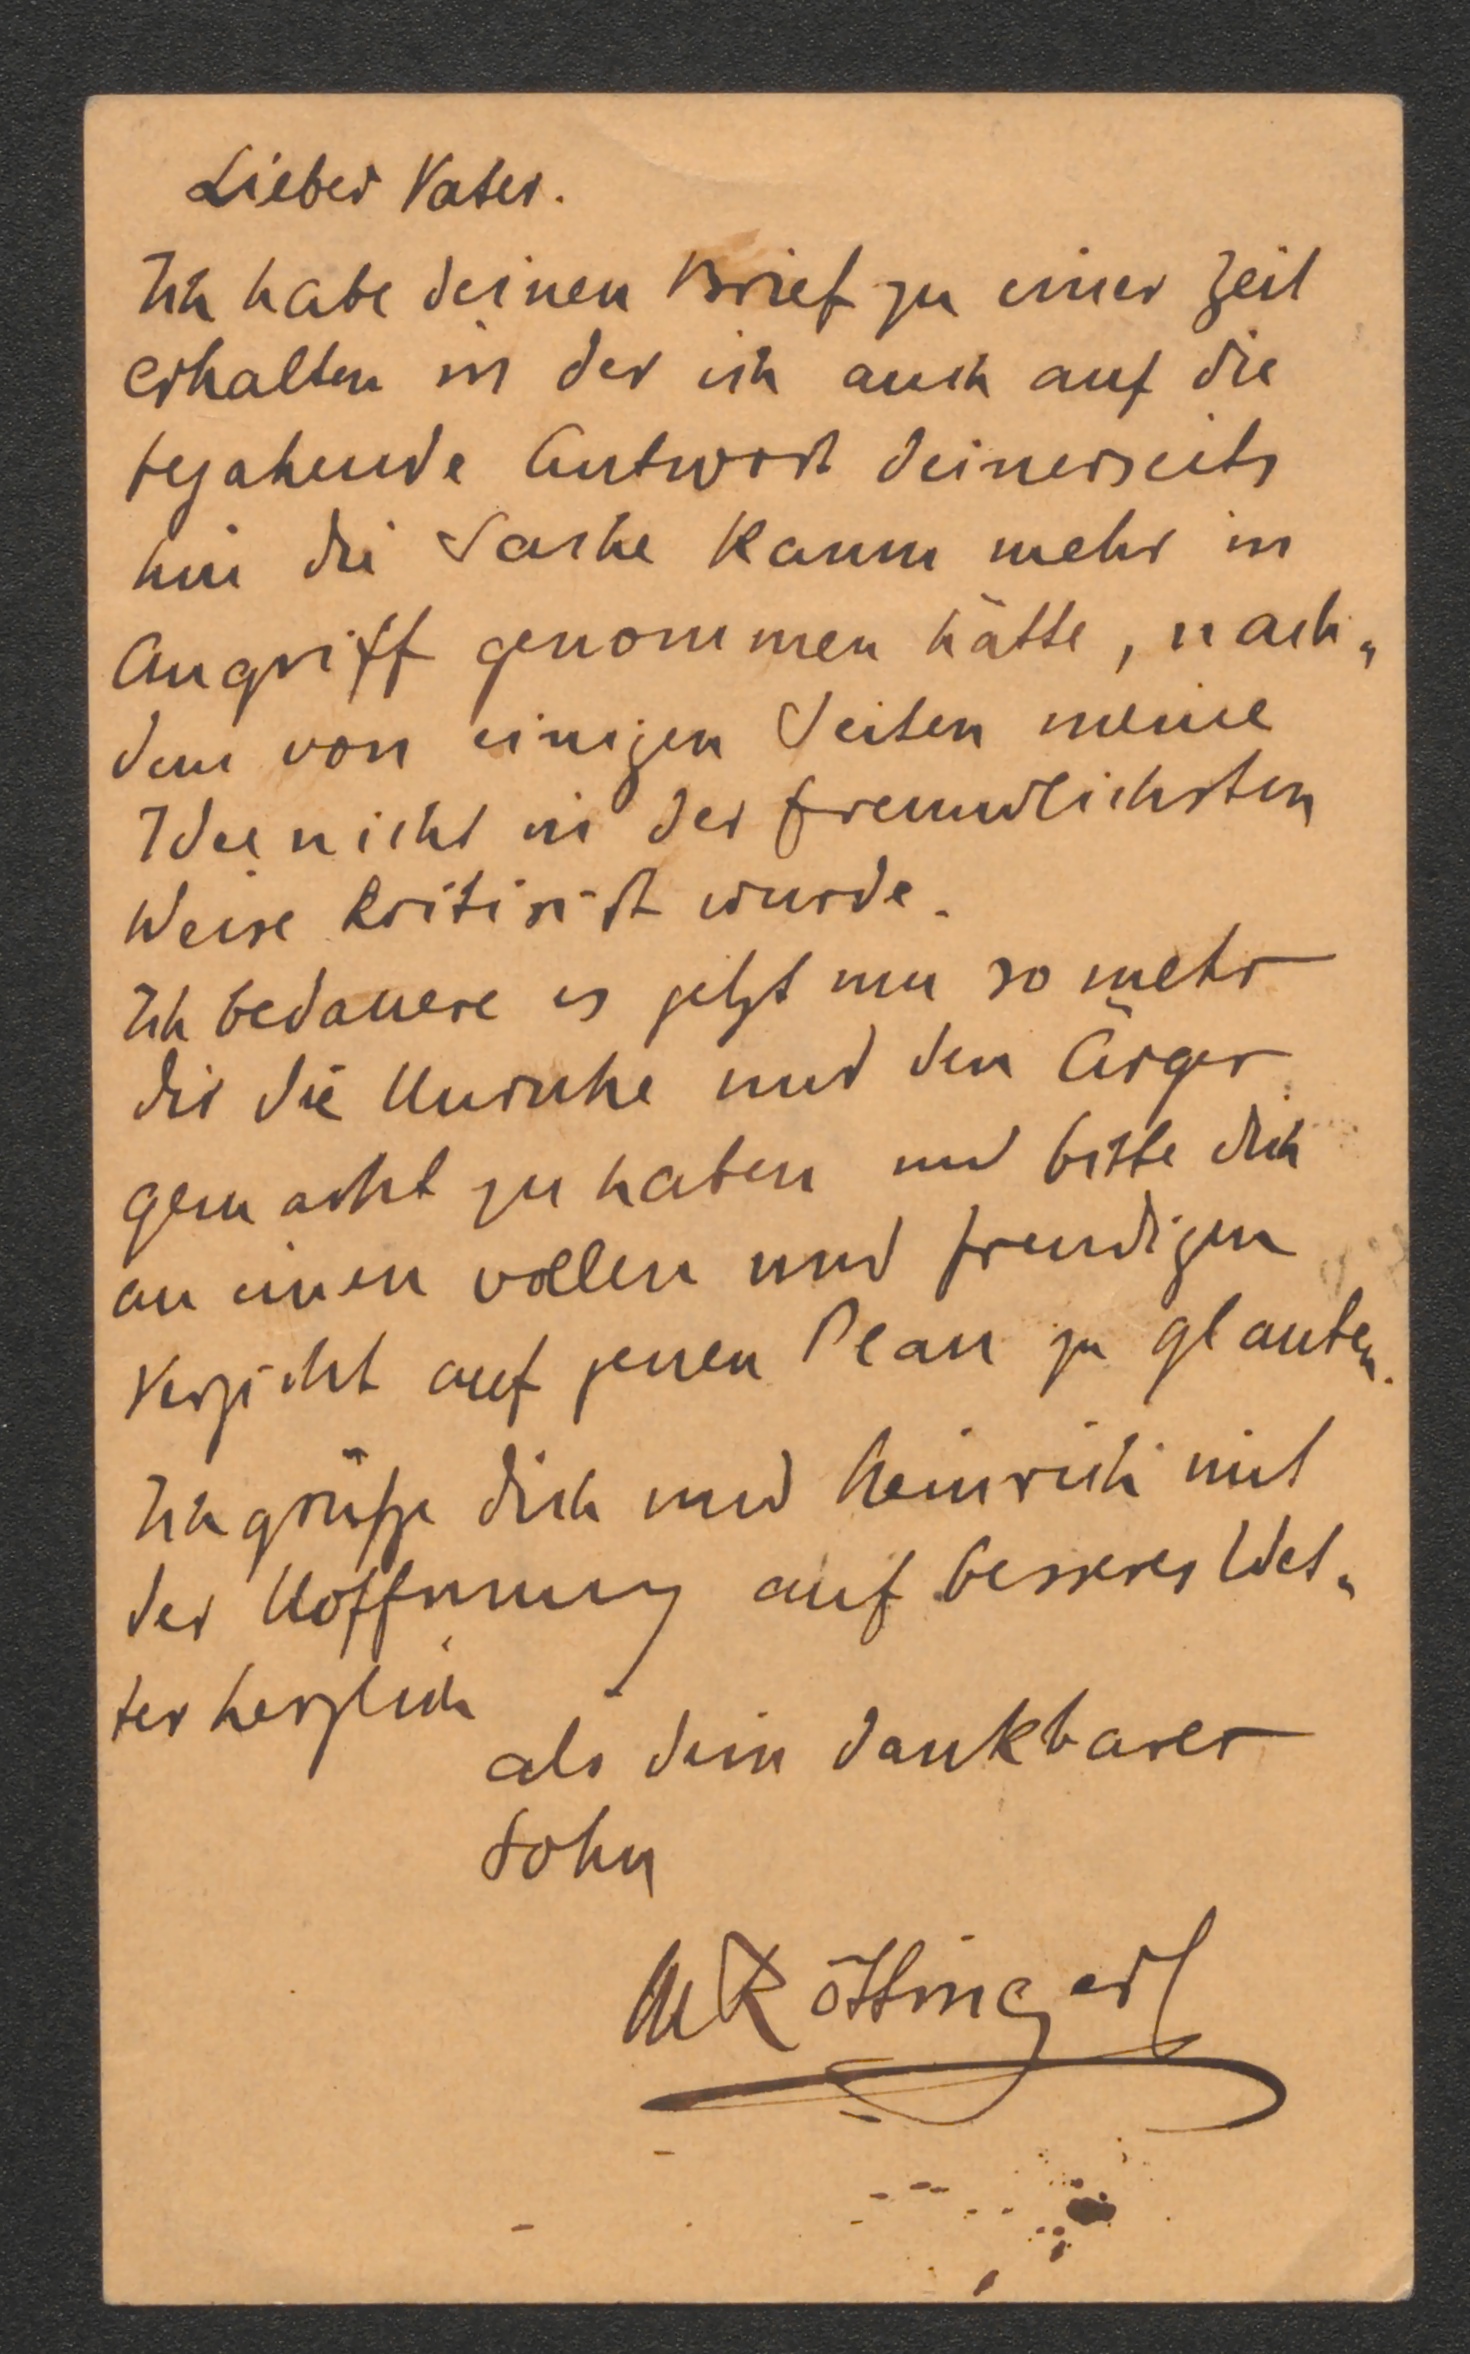 Lieber Vater.
Ich habe deinen Brief zu einer Zeit
erhalten in der ich auch auf die
bejahende Antwort deinerseits
hin die Sache kaum mehr in
Angriff genommen hätte, nach„
dem von einigen Seiten meine
Idee nicht in der freundlichsten
Weise kritisirt wurde.
Ich bedauere es jetzt um so mehr
dir die Unruhe und den Ärger
gemacht zu haben und bitte dich
an einen vollen und freudigen
Verzicht auf jenen Plan zu glauben.
Ich grüße dich und Heinrich mit
der Hoffnung auf besseres Wet„
ter herzlich
als dein dankbarer
Sohn
Röttinger